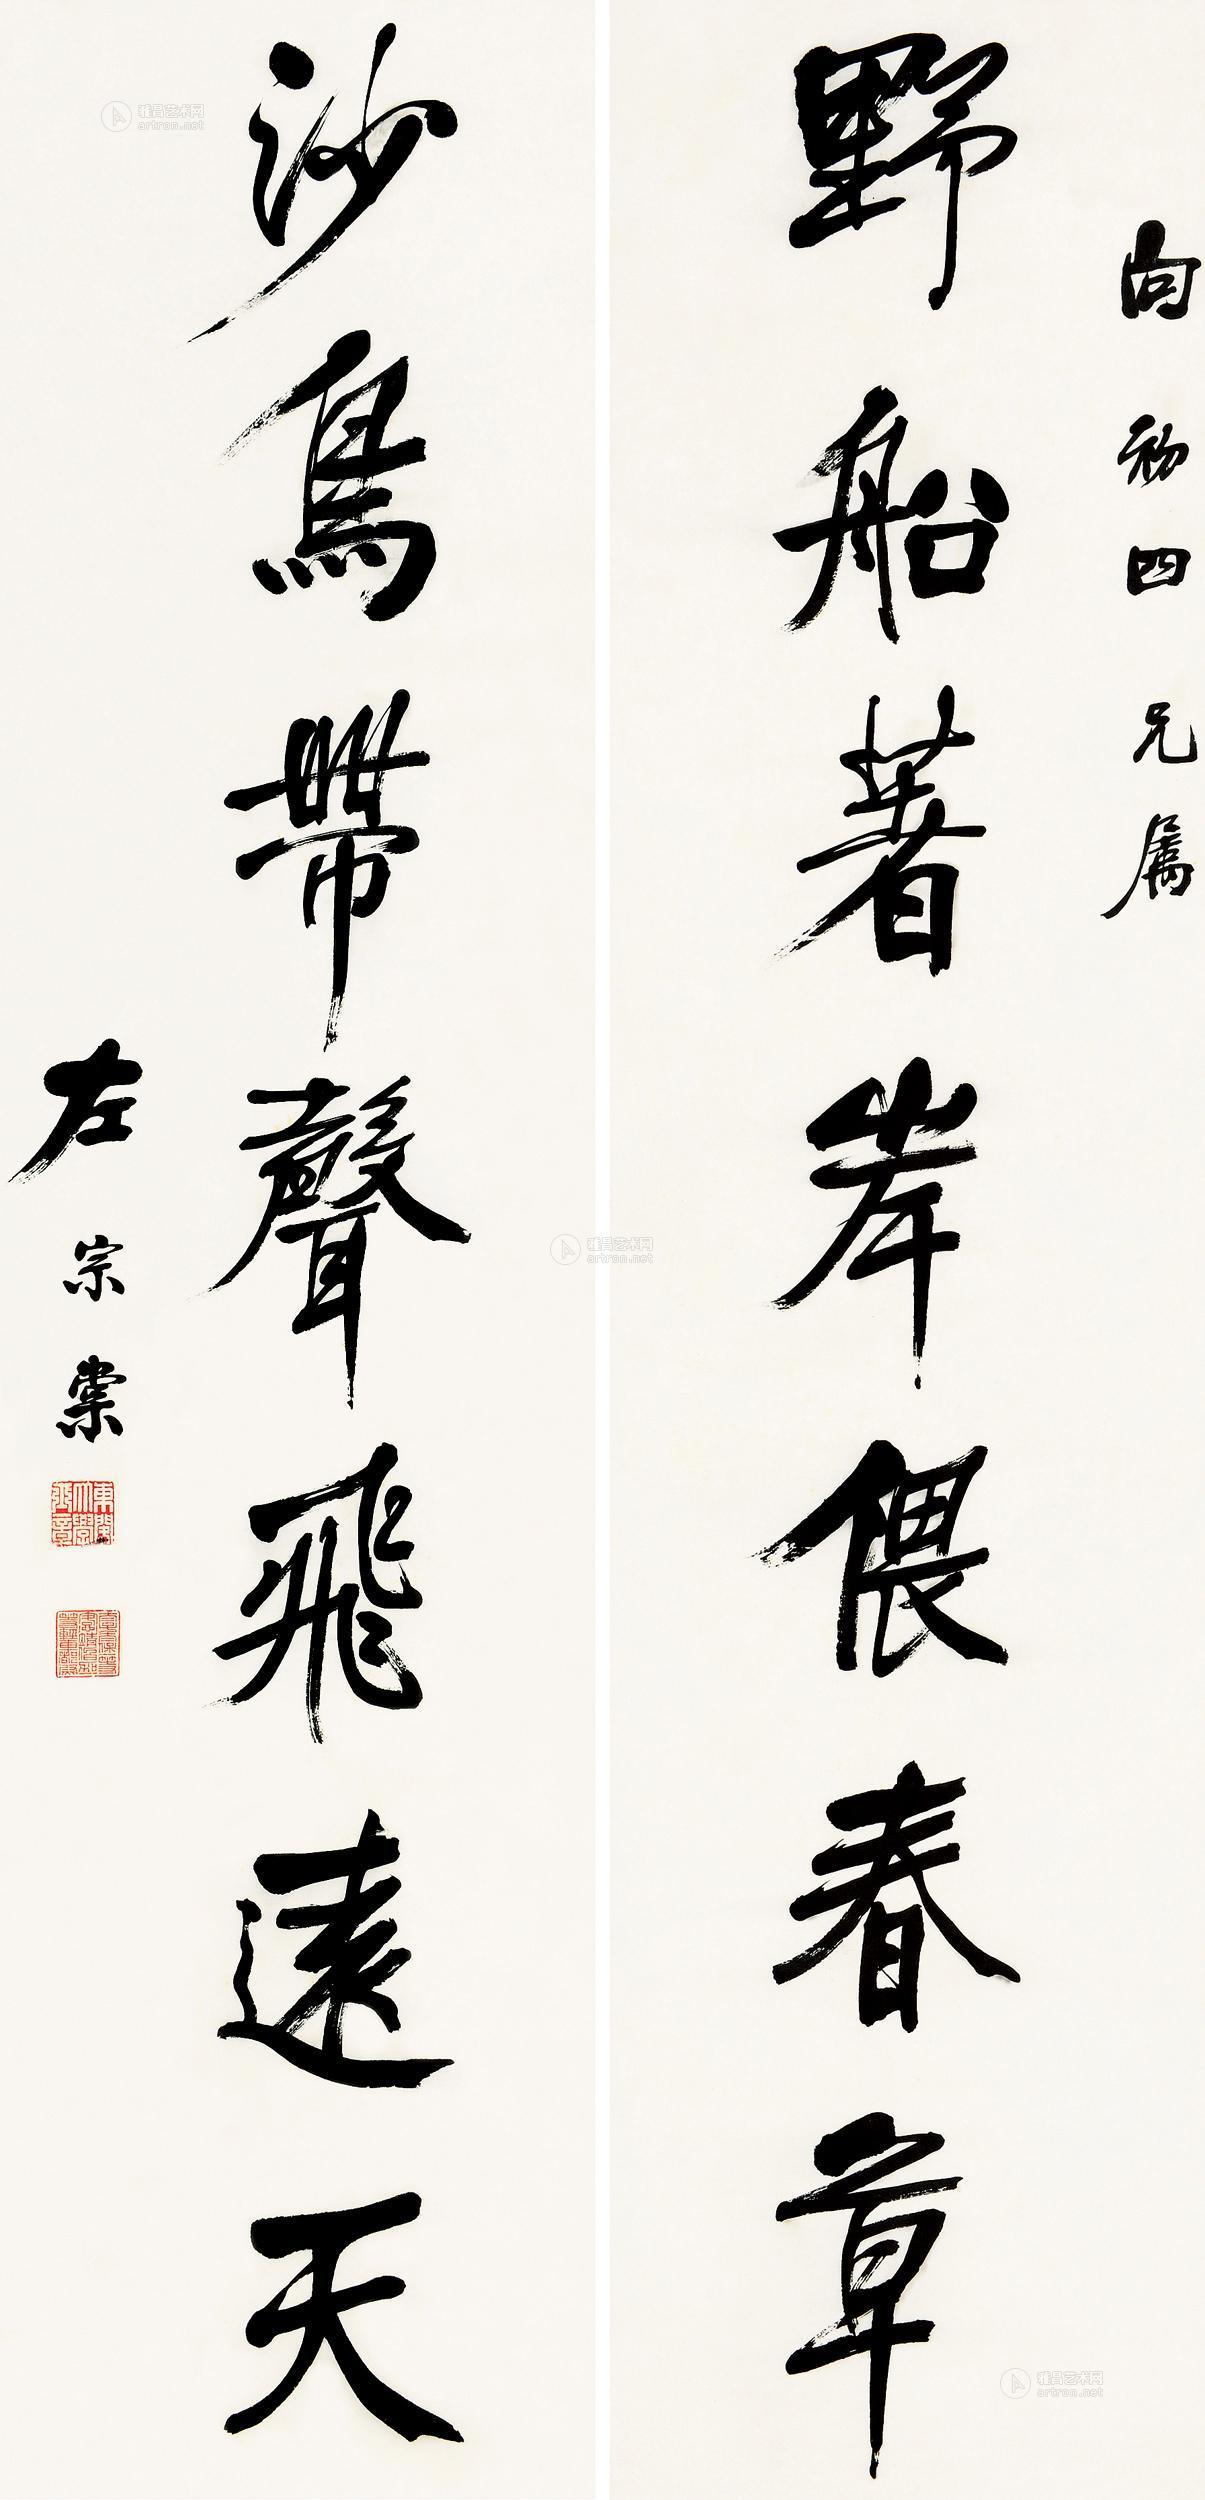 向初四兄属
野船著岸偎春草
沙鳥帶聲飛遠天
左宗棠
東閣大學士章
雅昌艺术网
artron.net
雅昌艺术网
artron.net
雅昌艺术网
artron.net